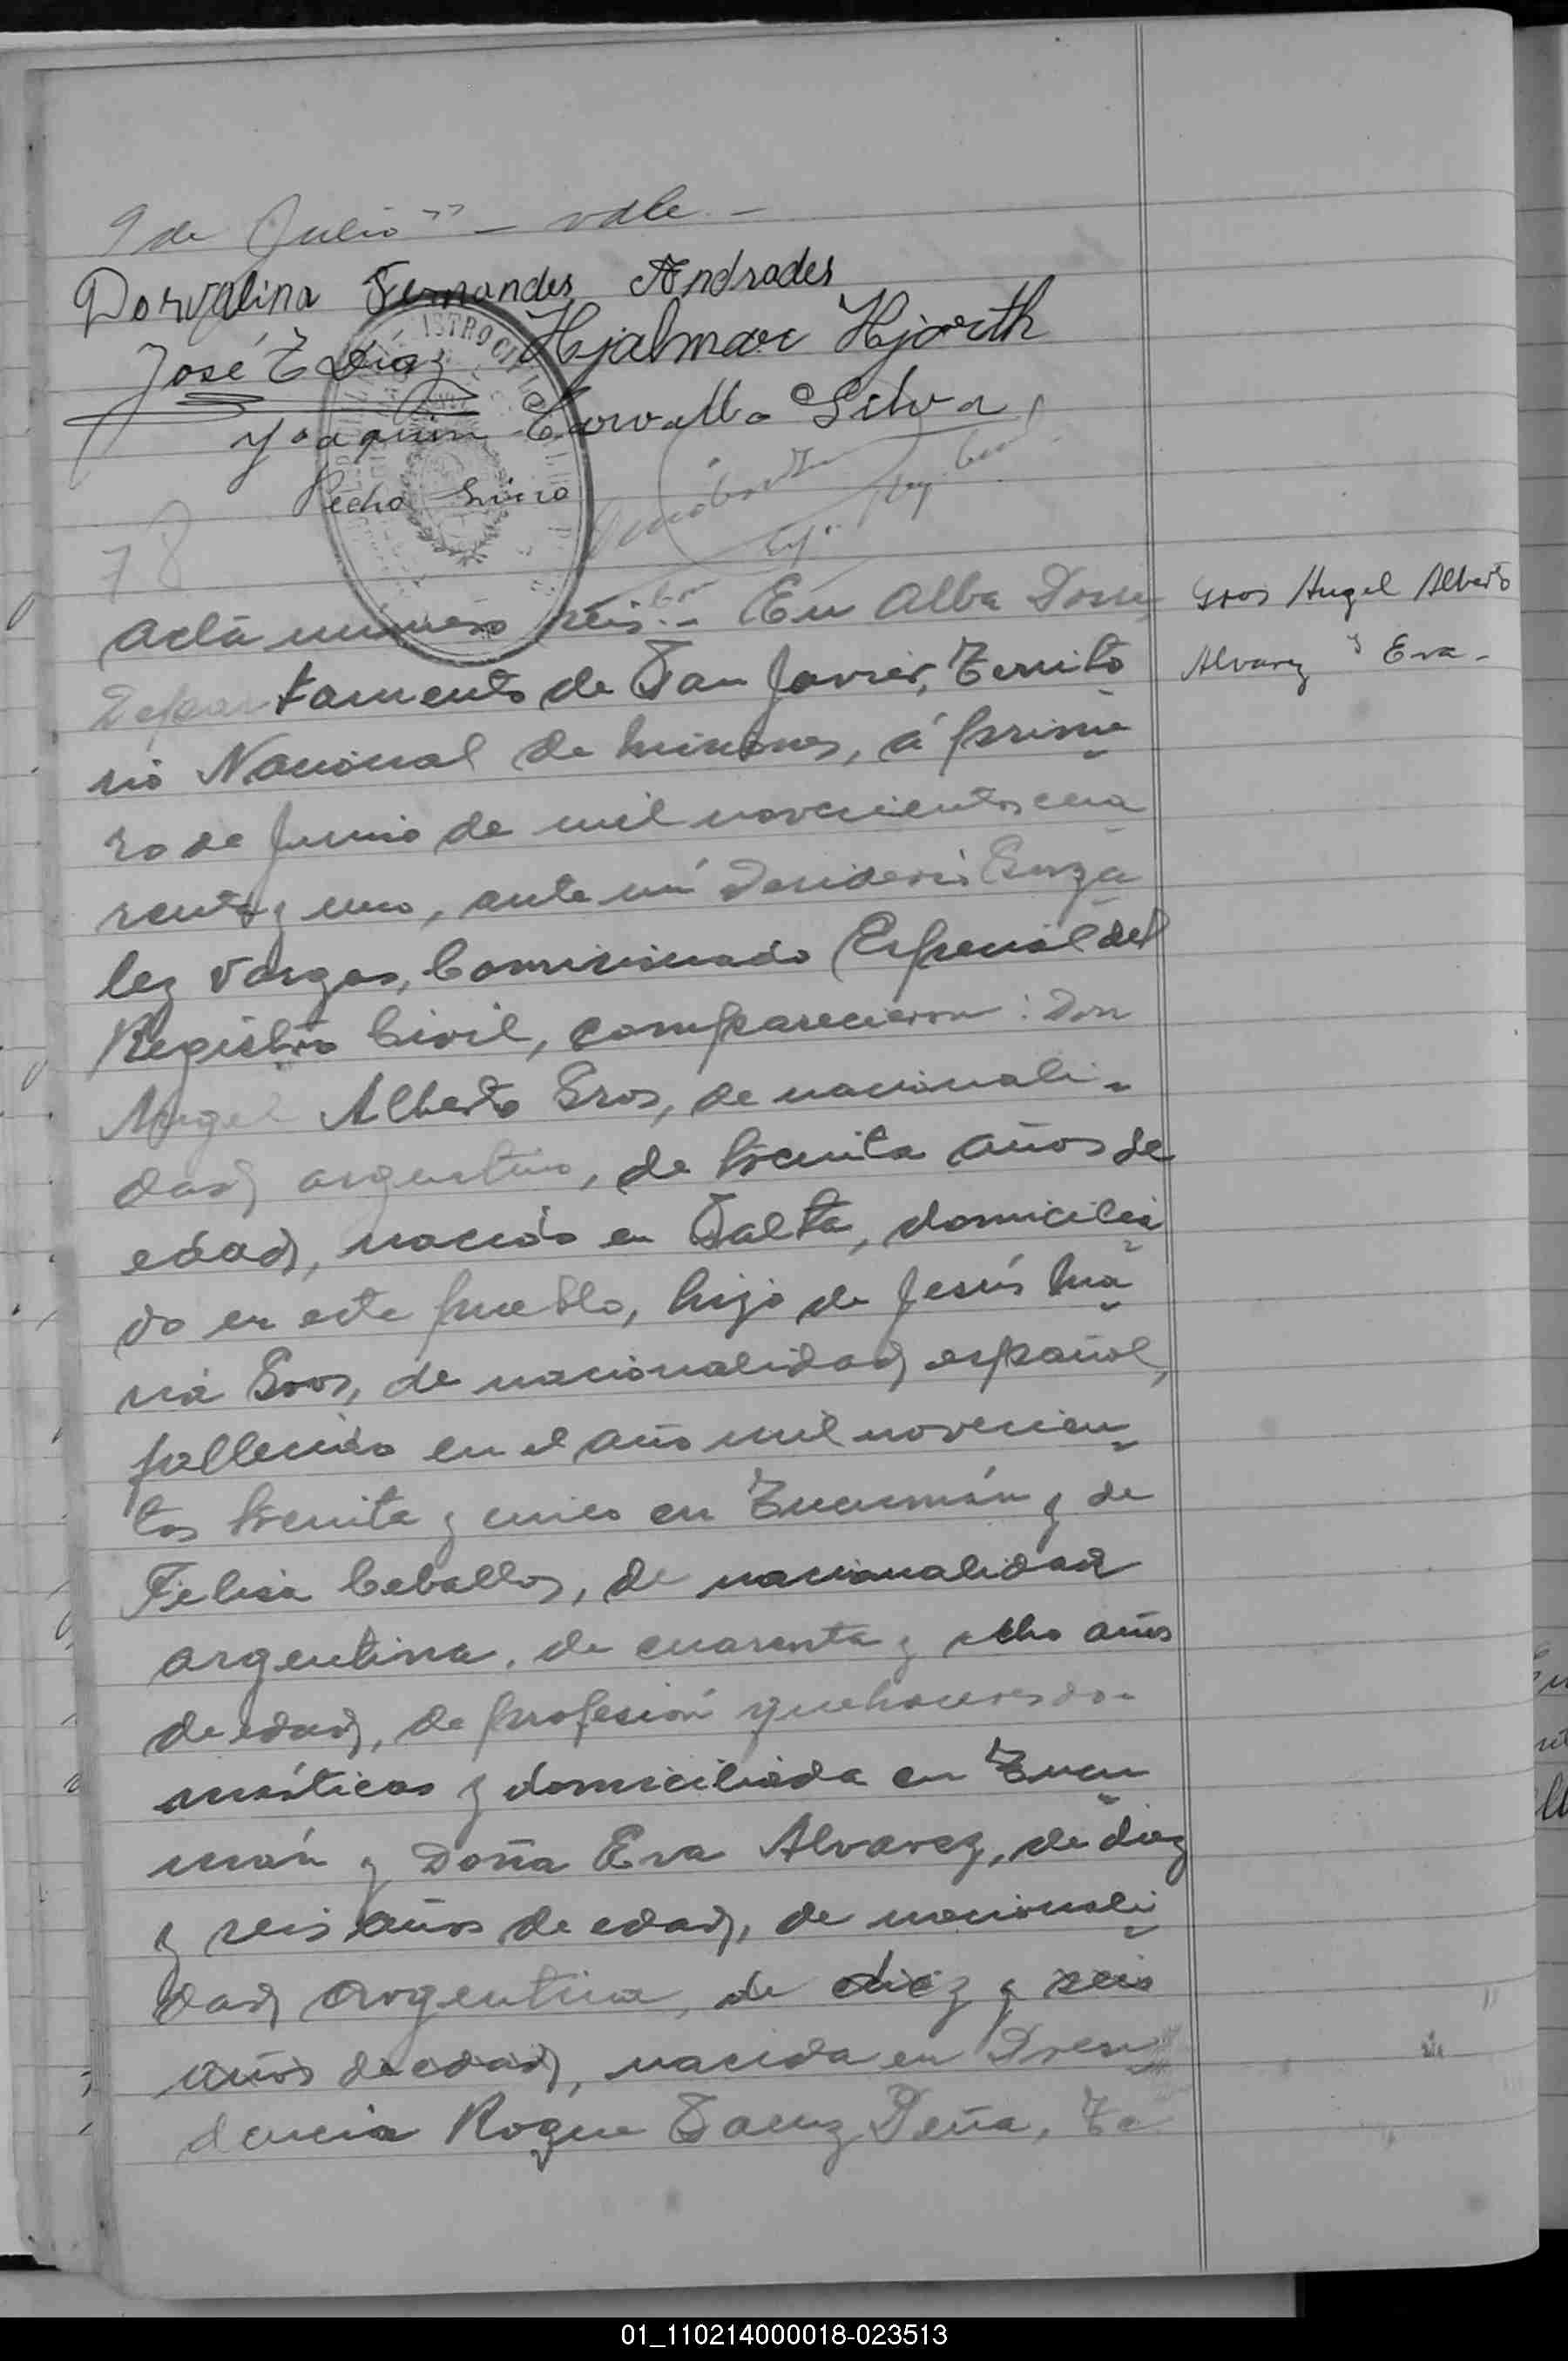 9 de Julio" — vale —
Dorvalina Fernandes Andrades
José E Diaz Hjalmar Hjorth
Joaquin Carvallo Silva
Pedro
78
Acta número seis.- En Alba Posse
Departamento de San Javier, Territo
rio Nacional de Misiones, á prime
ro de Junio de mil novecientos cua
renta y uno, ante mí Desiderio Gonza
lez Vargas, Comisionado Especial del
Registro Civil, comparecieron: Don
Angel Alberto Gros, de nacionali-
dad argentino, de treinta años de
edad, nacido en Salta, domicilia
do en este pueblo, hijo de Jesús Ma
ria Gros, de nacionalidad español,
fallecido en el año mil novecien
tos treinta y cinco en Tucumán y de
Felisa Ceballos, de nacionalidad
argentina, de cuarenta y ocho años
de edad, de profesión quehaceres do-
mésticos y domiciliada en Tucu
mán y Doña Eva Alvarez, de diez
y seis años de edad, de nacionali
dad argentina, de diez y seis
años de edad, nacida en Presi
dencia Roque Saenz Peña, Te
Gros Angel Alberto
Alvarez y Eva -
ISTRO CIVIL
01_110214000018-023513